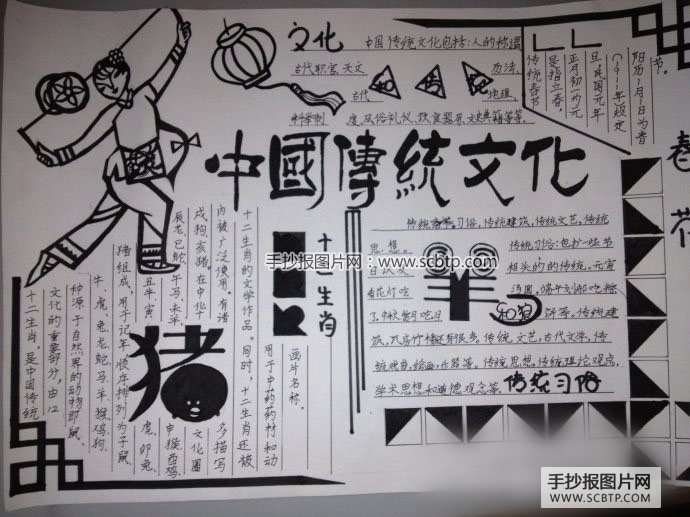 文化
中国传统文化包括:人的称谓
古代职官,天文
历法
古代
地理
科举制
度,风俗礼仪,饮食器用,文史典籍等等.
节。
阳历1月1日为春
(1911年)规定
旦,民国元年
正月初一为元
是指立春,
传统春节
春
花
中國傳統文化
手抄报图片网:www.scbtp.com
十二生肖
猪
十二生肖,是中国传统
文化的重要部分,由12
种源于自然界的动物即鼠、
牛、虎、兔、龙、蛇、马、羊、猴、鸡、狗、
猪组成,用于记年,顺序排列为子鼠、
丑牛、寅
虎、卯兔、
辰龙、巳蛇、午马、未羊、
申猴、酉鸡、
戌狗、亥猪。在中华
文化圈
内被广泛使用。有诸
多描写
十二生肖的文学作品。同时,十二生肖还被
用于中药药材和动
画片名称。
传统习俗,传统建筑,传统文艺,传统
思想。
传统习俗:包括一些节
相关的传统。元宵
看花灯吃
汤圆,端午划船吃粽
和狼
了,中秋赏月吃月
饼等。传统建
筑,凤凰竹楼还有很多。传统文艺,古代文学,传
统戏曲,绘画,乐器等。传统思想,传统理论观念,
学术思想和道德观念等。
传统习俗
手抄报图片网
WWW.SCBTP.COM